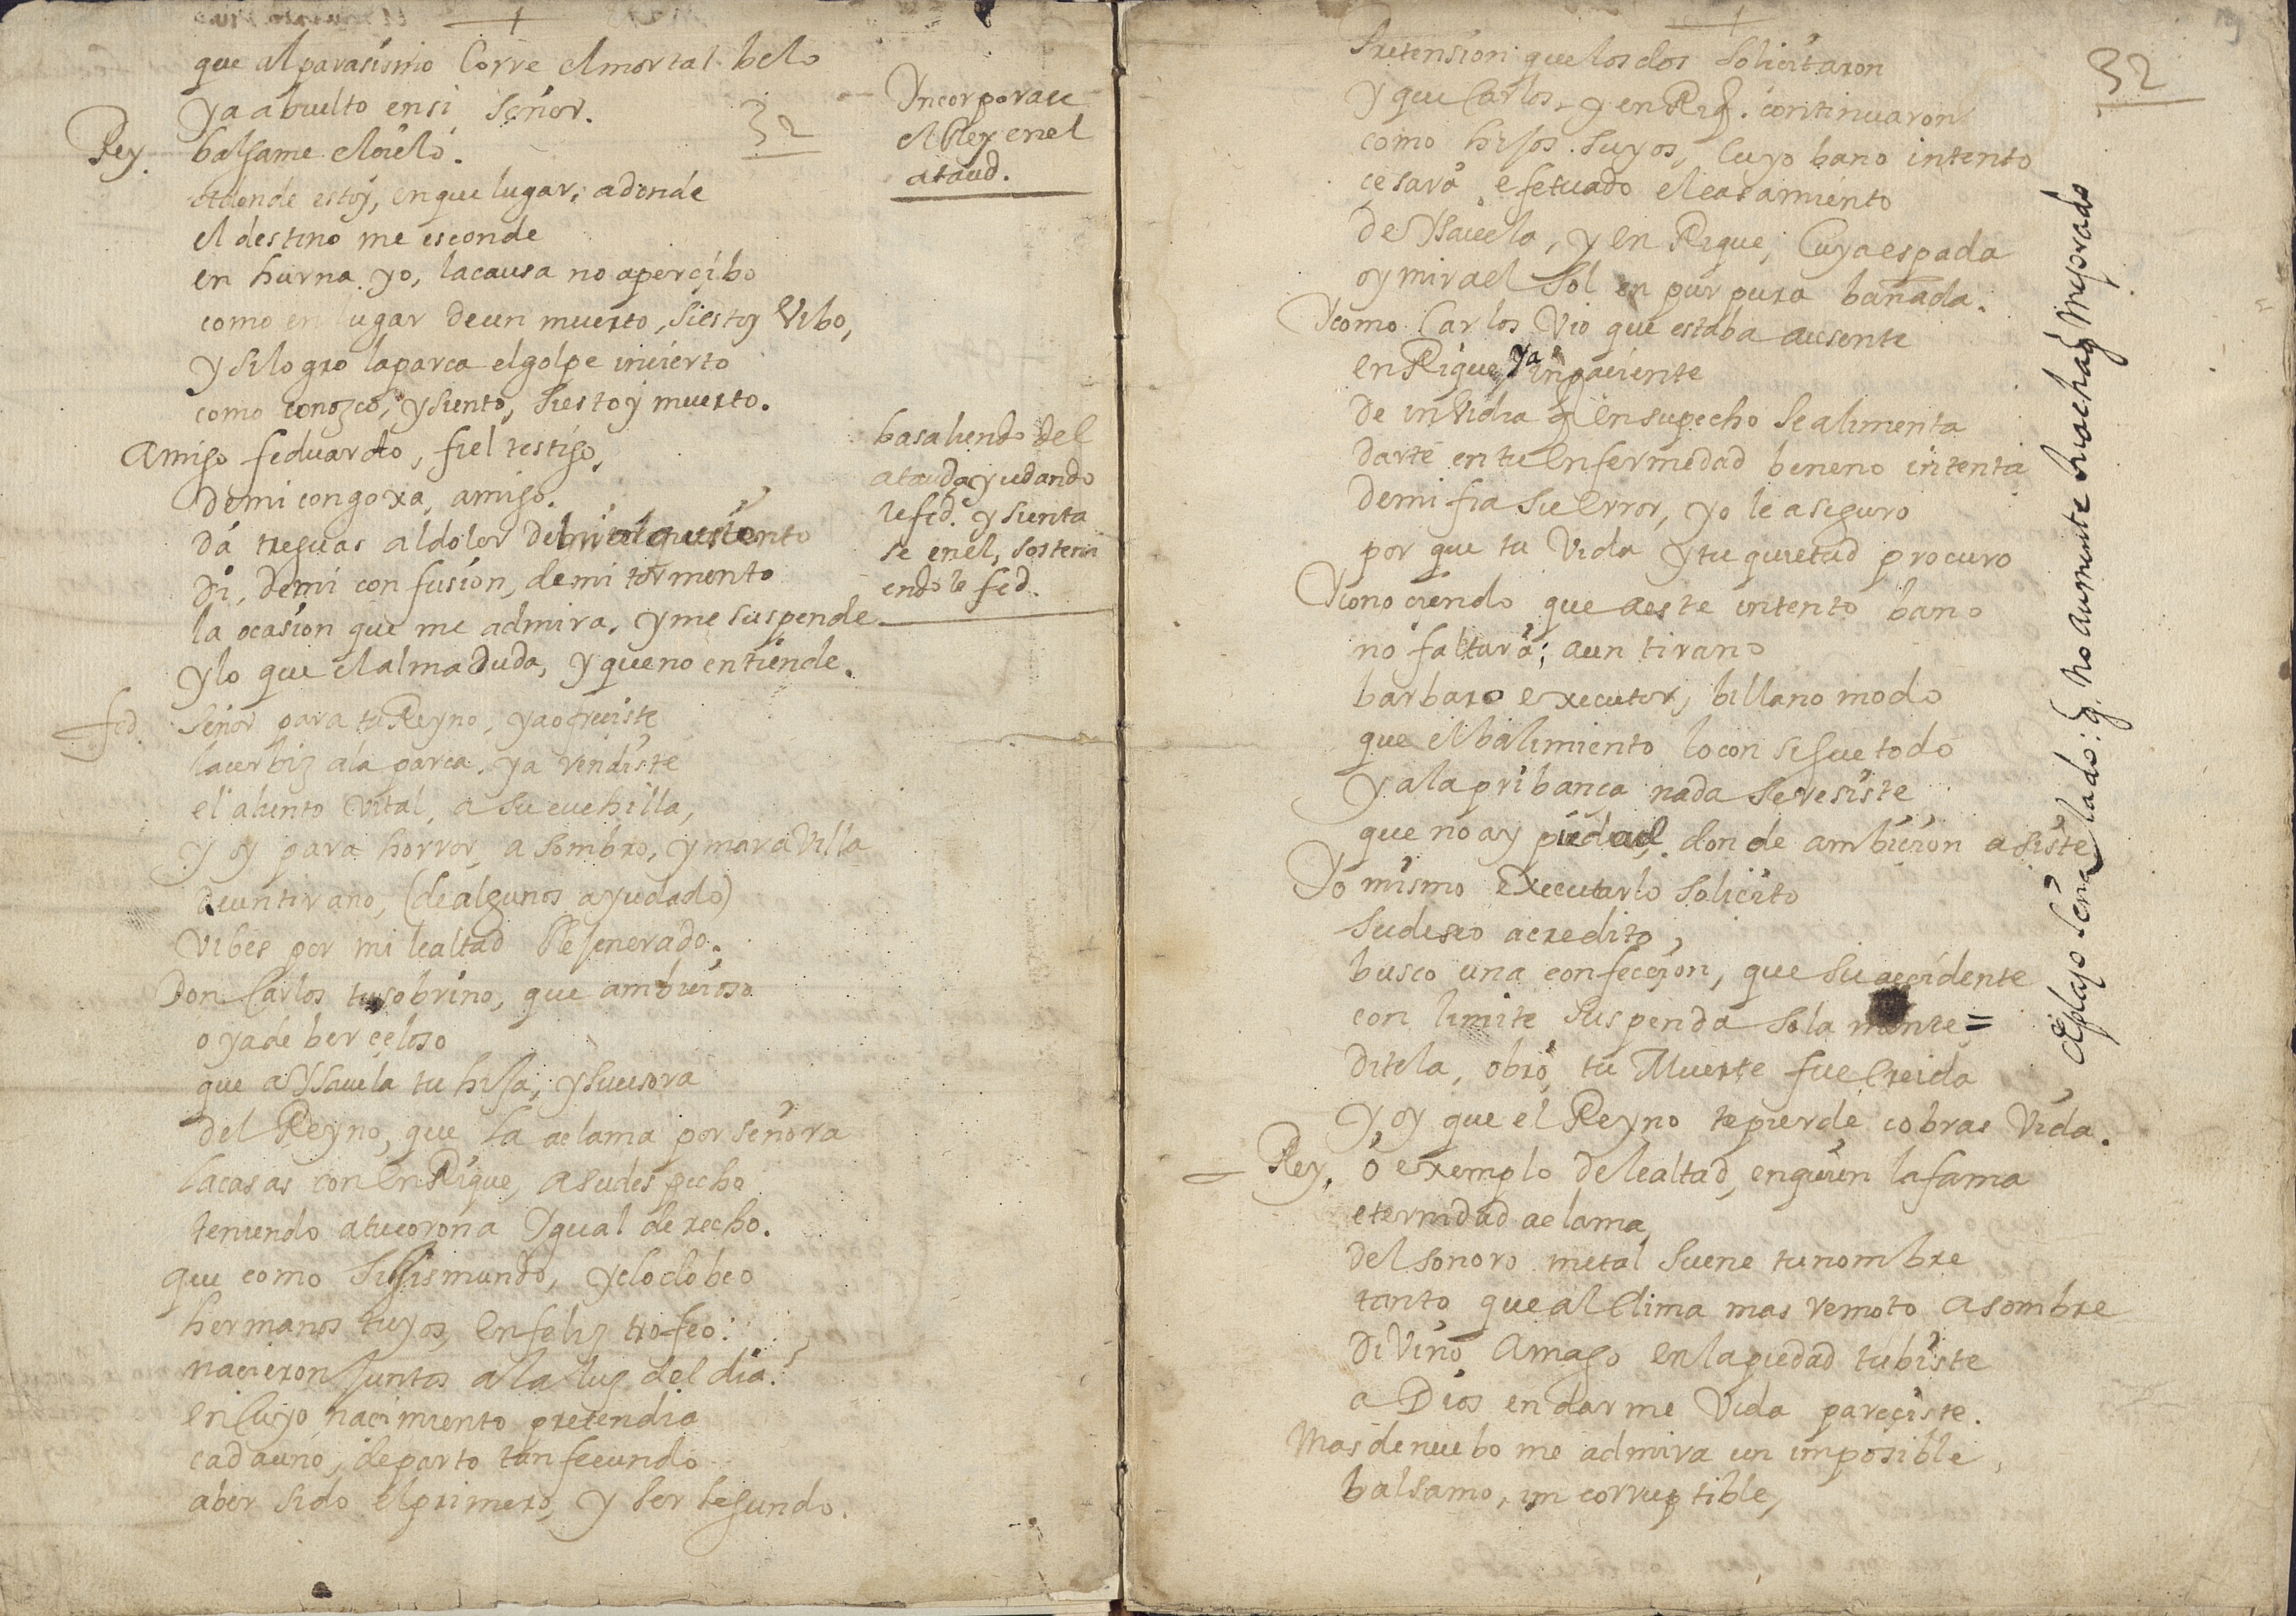 que al parasismo Corre el mortal belo
ya a buelto en si Señor.
32
Yncorporase
el Rey en el
ataud.
Rey. balgame el cielo.
adonde estoy, en que lugar; a donde
el destino me esconde
en hurna yo, la causa no aperçibo
como en lugar de un muerto, si estoy Vibo,
y si logro la parca el golpe incierto
como conozco, y siento, si estoy muerto.
Amigo feduardo, fiel testigo,
de mi congoxa, amigo.
ba saliendo del
ataud ayudando
le fed. y sienta
se en el, sosteni
endole fed.
da treguas al dolor
di, de mi confusion, de mi tormento
la ocasion que me admira, y me suspende
y lo que el alma duda, y que no entiende.
fed. Señor para tu Reyno, ya ofreciste
la cerbiz a la parca, ya rendiste
el aliento Vital, a su cuchilla,
y oy para horror, asombro, y maraVilla
de un tirano, (de algunos ayudado)
Vibes por mi lealtad Resenerado.
Don Carlos tu sobrino, que ambicioso
o ya de ber çeloso
que a Ysavela tu hija, y sucesora
del Reyno, que la aclama por señora
la casas con EnRique, a su despecho
teniendo a tu corona Ygual derecho.
que como Sigismundo, y clodobeo
hermanos tuyos, en feliz trofeo:
nacieron juntos a la luz del dia.
en Cuyo nacimiento pretendia
cada uno, de parto tan fecundo
aber sido el primero, y ser segundo.
32
Pretension que los dos Solicitaron
y que Carlos, y enRiq. continuaron
como hijos suyos, Cuyo bano intento
çesara efetuado el casamiento
de Ysavela, y en Rique, Cuya espada
oy mira el Sol en purpura bañada.
Y como Carlos Vio que estaba ausente
enRique, ya inpaciente
de inVidia q en su pecho se alimenta
darte en tu enfermedad beneno intenta
de mi fia su error, yo le aseguro
por que tu Vida y tu quietud procuro
Y conociendo que a este intento bano
no faltara; a un tirano
barbaro executor, billano modo
que el balimiento lo consigue todo
y a la pribança nada se resiste
que no ay piedad donde ambicion asiste
Yo mismo executarlo solicito
su deseo acredito,
busco una confeccion, que su accidente
con limite suspenda sola mente=
ditela, obro, tu Muerte fue Creida
y oy que el Reyno te pierde cobras Vida.
Rey, o exemplo de lealtad, en quien la fama
eternidad aclama,
del sonoro metal suene tu nombre
tanto que al Clima mas remoto asombre
diVino Amago en la piedad tubiste
a Dios en darme Vida pareçiste.
Mas de nuebo me admira un imposible,
balsamo, incorruptible,